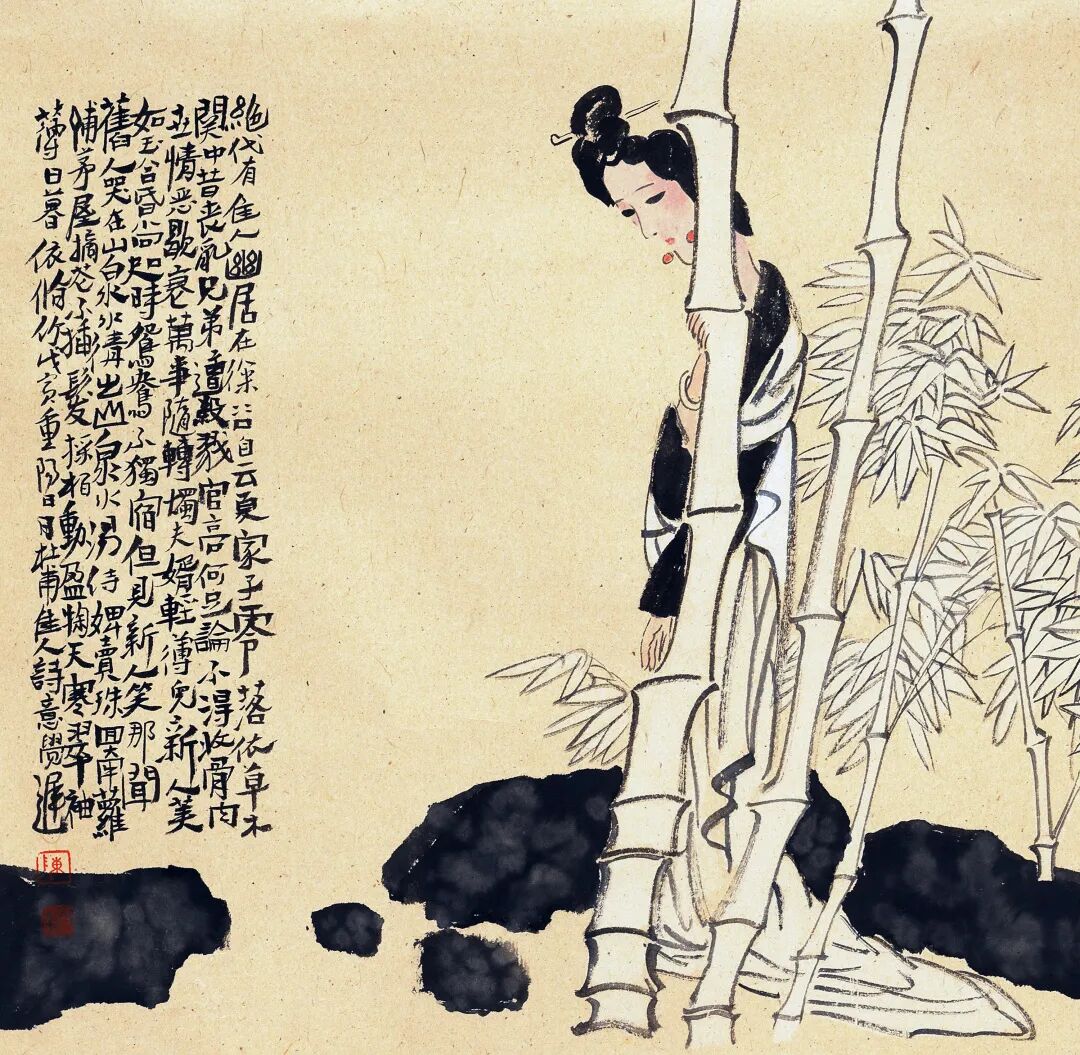 絕代有佳人幽居在深谷自云良家子零落依草木
関中昔喪亂兄弟遭殺戮官高何足論不得收骨肉
世情惡歇衰萬事隨轉燭夫婿輕薄兒新人美
如玉合昏尚知時鴛鴦不獨宿但見新人笑那聞
舊人哭在山泉水清出山泉水濁侍婢賣珠回牽蘿
補茅屋摘花不插髮採柏動盈掬天寒翠袖
薄日暮依脩竹重陽日杜甫佳人詩意覺遲
陳